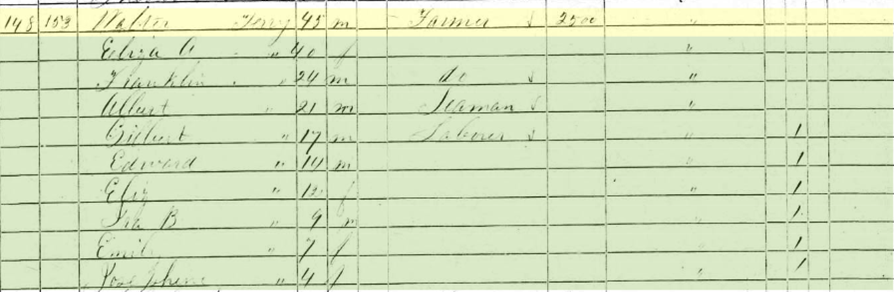 148 153 Walter Terry 45 m Farmer 2500 "
Eliza A " 40 f "
Franklin " 24 m do "
Albert " 21 m Seaman "
Gilbert " 17 m Laborer " 1
Edward " 14 m " 1
Eliz " 12 f " 1
Ira B " 9 m " 1
Emil " 7 f " 1
Josephine " 4 f " 1